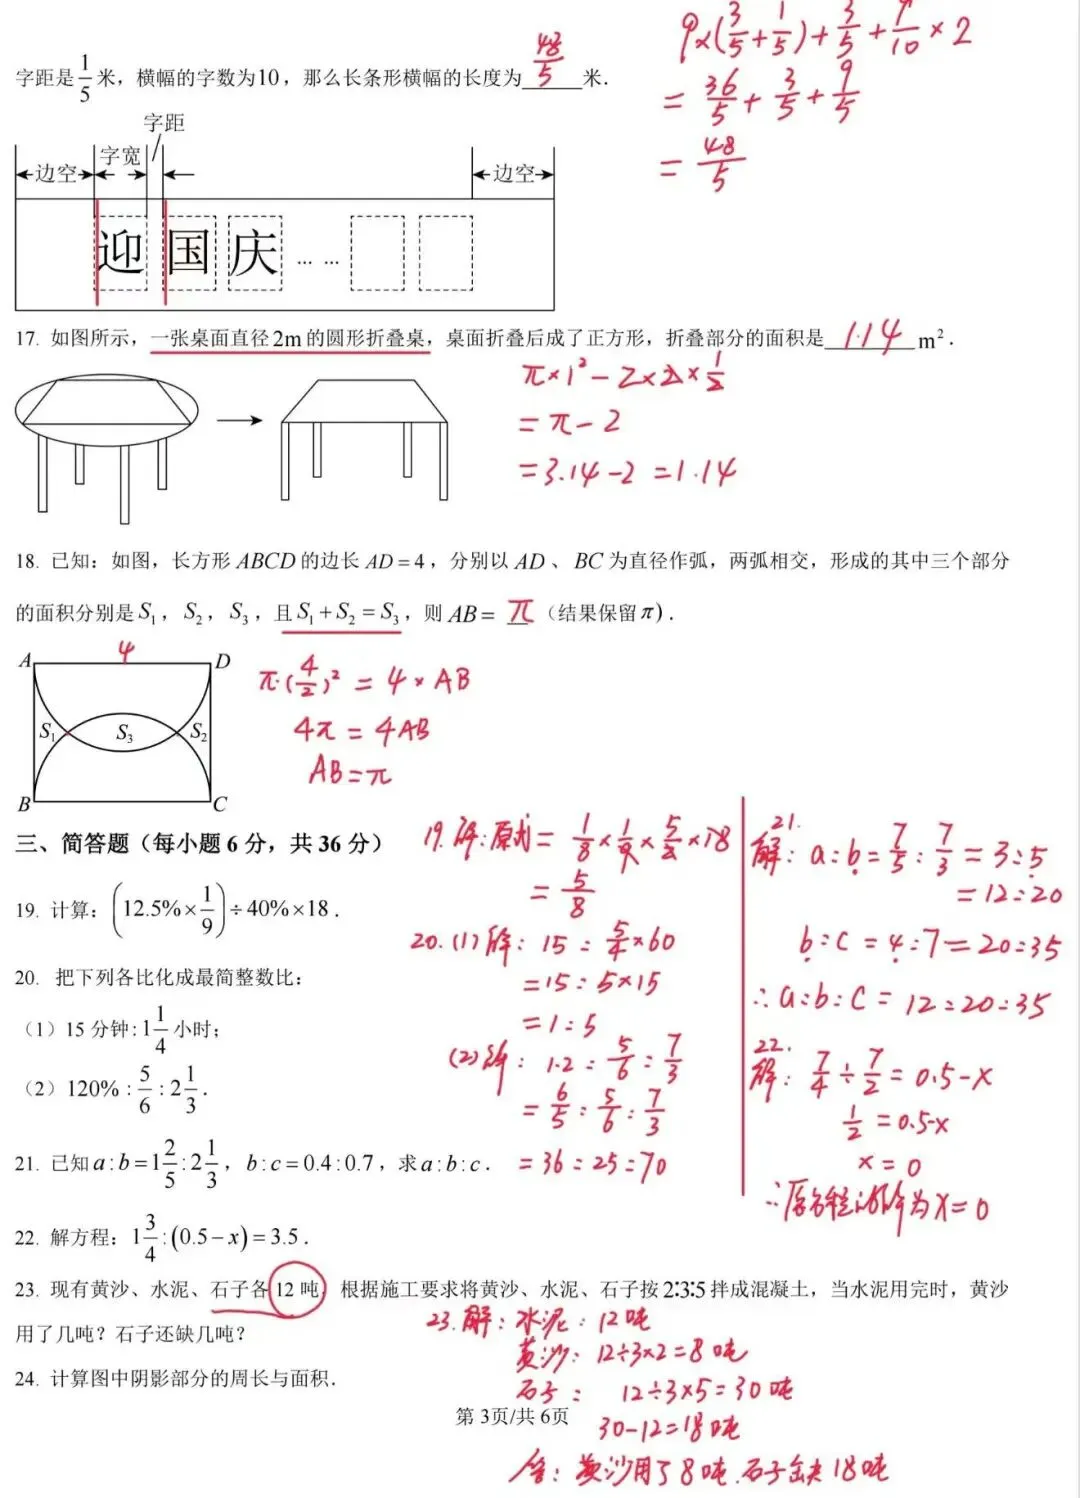 9×(3/5+1/5)+3/5+9/10×2
=36/5+3/5+9/5
=48/5
字距是1/5米，横幅的字数为10，那么长条形横幅的长度为48/5米.
字距
边空 字宽 边空
迎 国 庆 … …
17. 如图所示，一张桌面直径2m的圆形折叠桌，桌面折叠后成了正方形，折叠部分的面积是1.14m².
π×1²-2×2×1/2
=π-2
=3.14-2=1.14
18. 已知：如图，长方形ABCD的边长AD=4，分别以AD、BC为直径作弧，两弧相交，形成的其中三个部分
的面积分别是S₁，S₂，S₃，且S₁+S₂=S₃，则AB=π（结果保留π）.
A 4 D
S₁ S₃ S₂
B C
π·(4/2)²=4×AB
4π=4AB
AB=π
三、简答题（每小题6分，共36分）
19. 计算：(12.5%×1/9)÷40%×18.
20. 把下列各比化成最简整数比：
（1）15分钟:1 1/4小时；
（2）120%:5/6:2 1/3.
21. 已知a:b=1 2/5:2 1/3，b:c=0.4:0.7，求a:b:c.
22. 解方程：1 3/4:(0.5-x)=3.5.
19.解:原式=1/8×1/9×5/2×18
=5/8
20.(1)解:15:5/4×60
=15:5×15
=1:5
(2)解:1.2:5/6:7/3
=6/5:5/6:7/3
=36:25:70
21.
解:a:b=7/5:7/3=3:5
=12:20
b:c=4:7=20:35
∴a:b:c=12:20:35
22.
解:7/4÷7/2=0.5-x
1/2=0.5-x
x=0
∴原方程的解为x=0
23. 现有黄沙、水泥、石子各12吨，根据施工要求将黄沙、水泥、石子按2:3:5拌成混凝土，当水泥用完时，黄沙
用了几吨？石子还缺几吨？
23.解:水泥:12吨
黄沙:12÷3×2=8吨
石子:12÷3×5=30吨
30-12=18吨
答:黄沙用了8吨.石子缺18吨
24. 计算图中阴影部分的周长与面积.
第3页/共6页